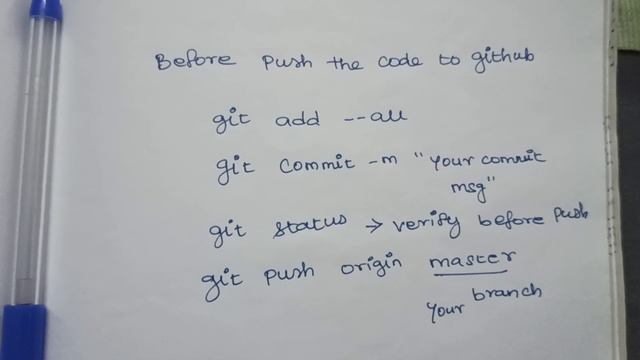 Before push the code to github
git add --all
git commit -m "your commit
msg"
git status → verify before push
git push origin master
your branch